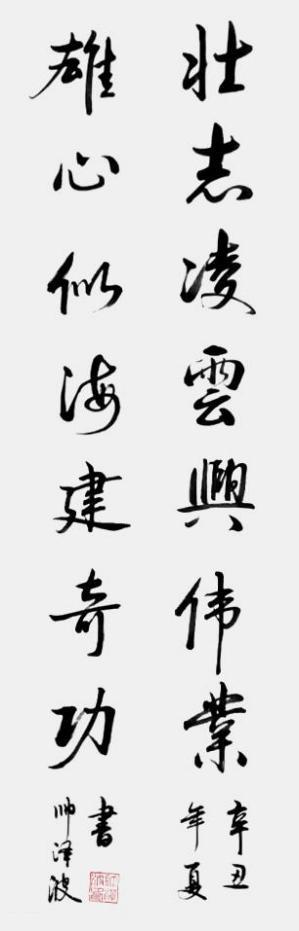 壮志凌雲興伟業
辛丑
年夏
雄心似海建奇功
書
帅泽波